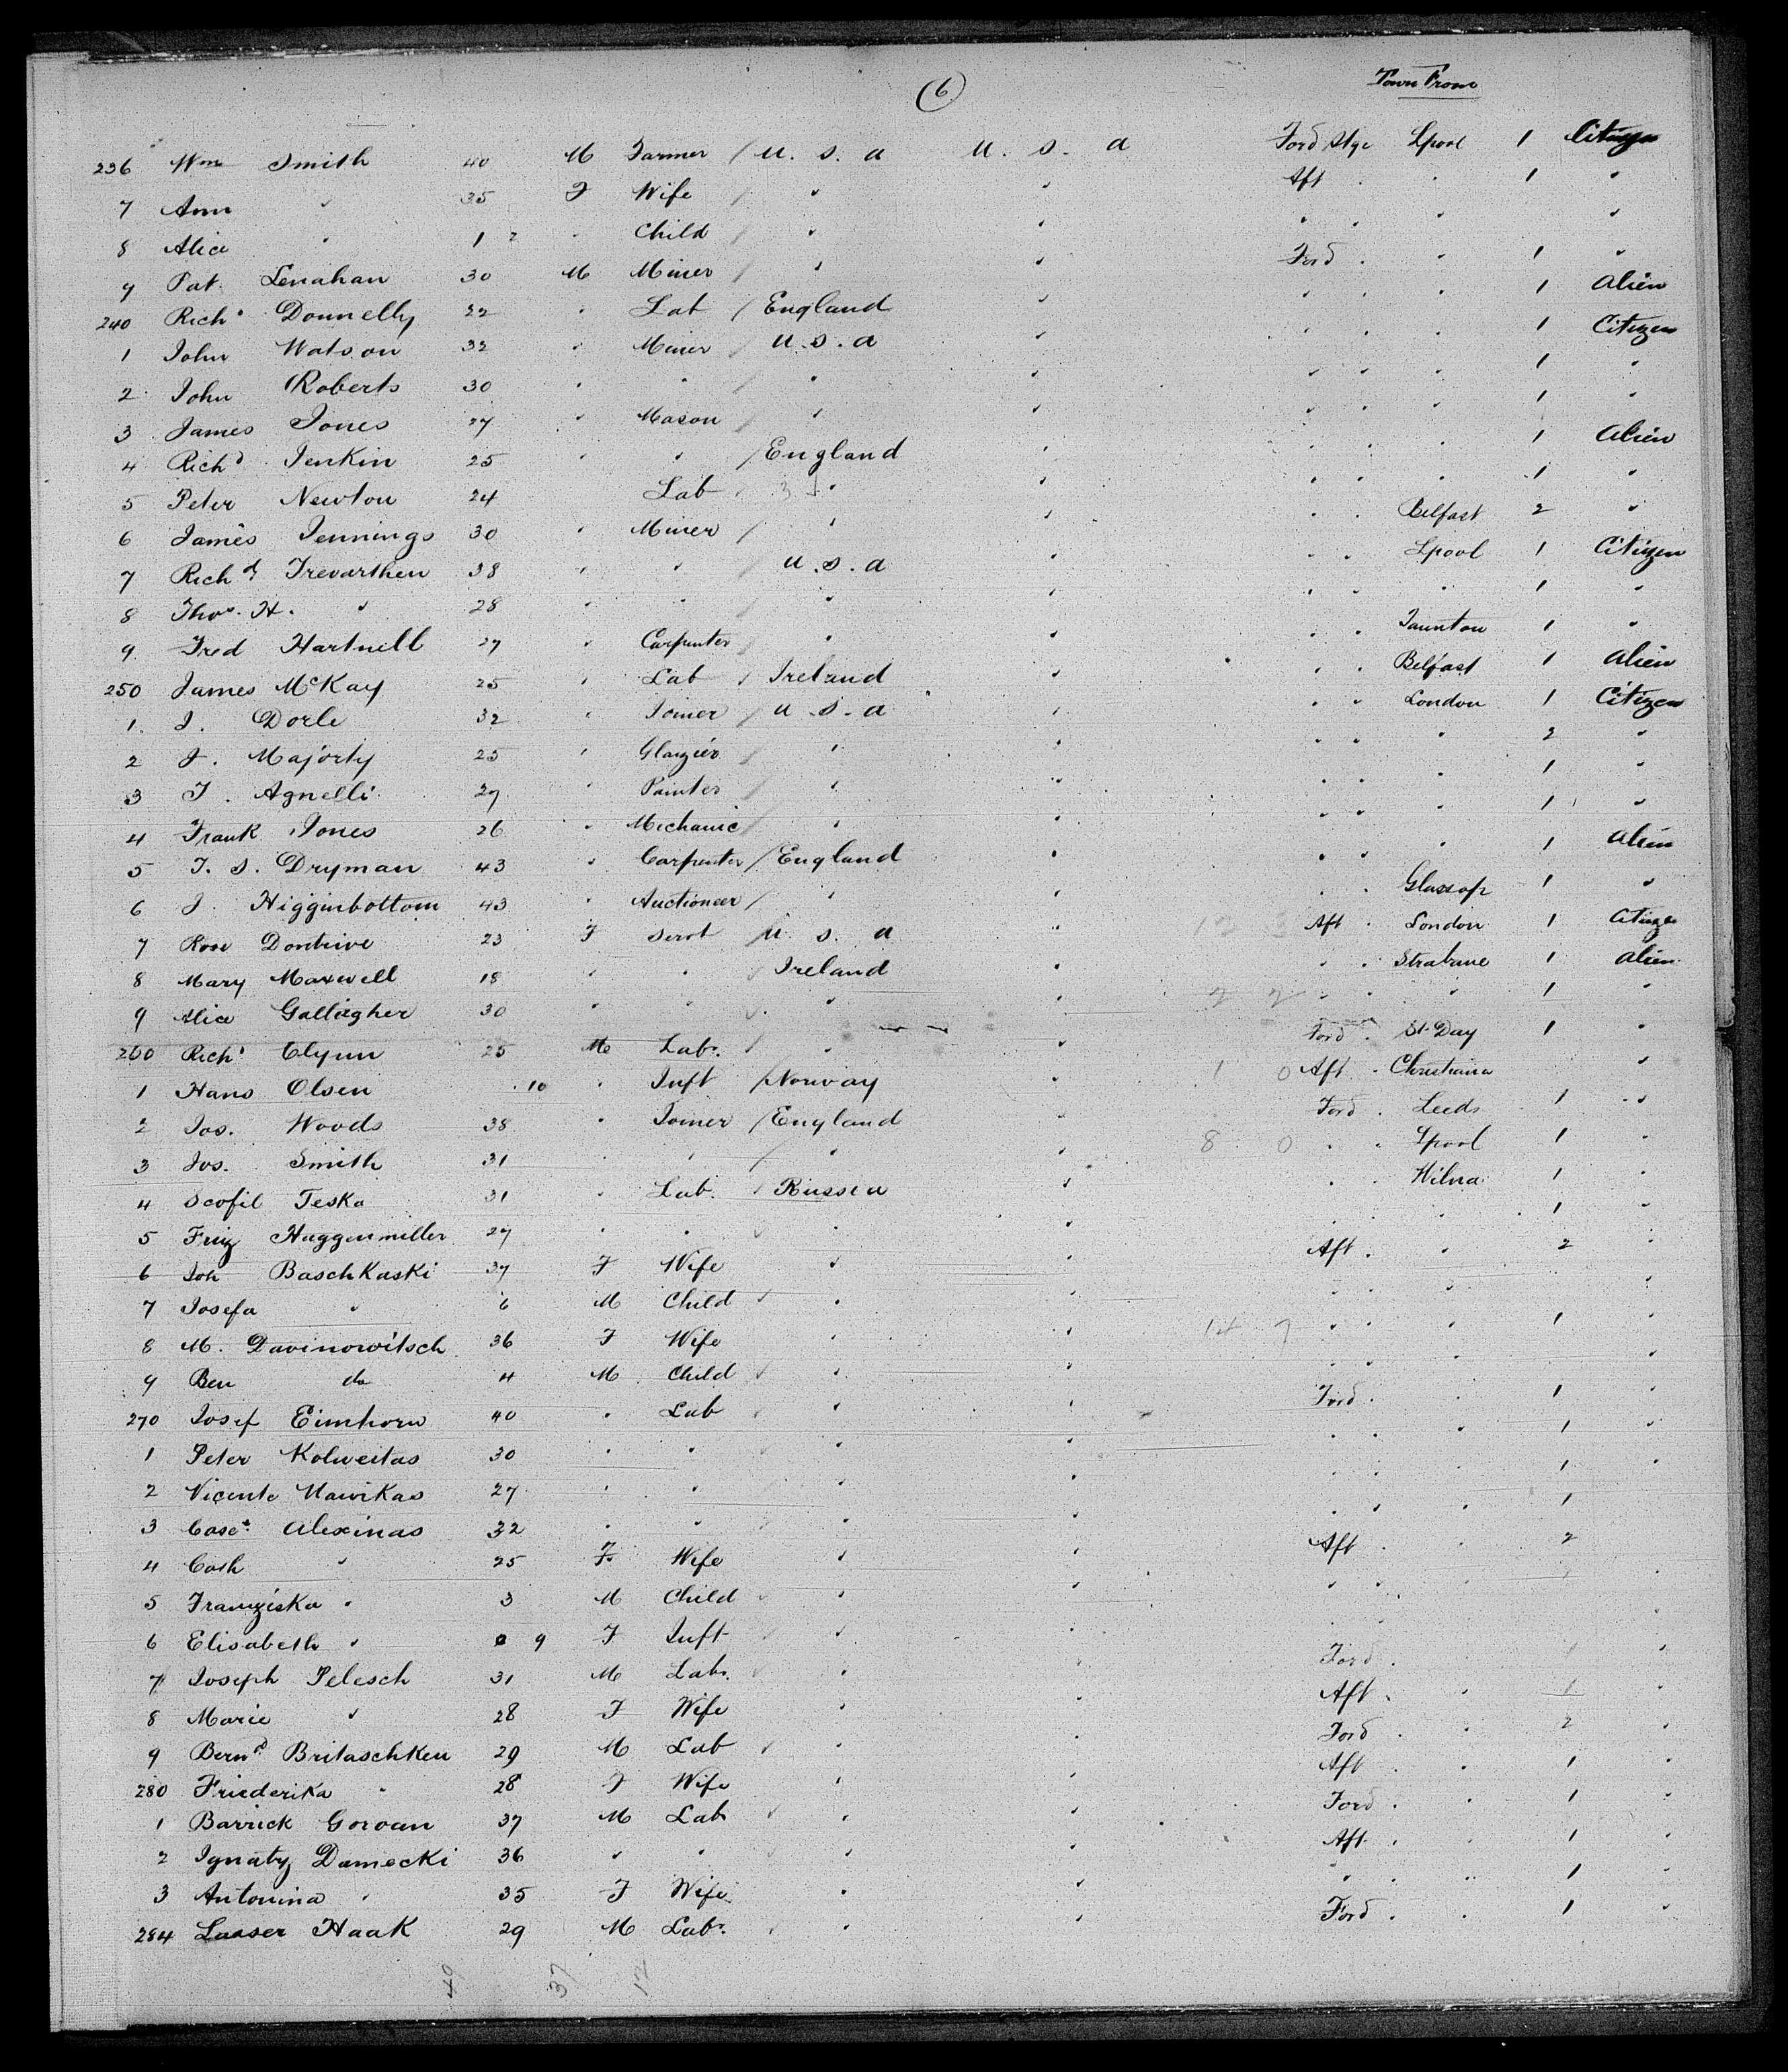 6
Town From
236 Wm Smith 40 M Farmer / U. S. A U. S. A Ford Stge Lpool 1 Citizen
7 Ann " 35 F Wife / " " Aft " " 1 "
8 Alice " 1 " Child / " " " " " "
9 Pat. Lenahan 30 M Miner / " " Ford " " 1 "
240 Richd Donnelly 22 " Lab / England " " " " 1 Alien
1 John Watson 32 " Miner / U. S. A " " " " 1 Citizen
2 John Roberts 30 " " / " " " " " 1 "
3 James Jones 27 " Mason / " " " " " 1 "
4 Richd Jenkin 25 " " / England " " " " 1 Alien
5 Peter Newton 24 Lab " " " " " 1 "
6 James Jennings 30 " Miner / " " " " Belfast 2 "
7 Richd Trevarthen 38 " " / U. S. A " " " Lpool 1 Citizen
8 Thos. H. " 28 " " / " " " " " 1 "
9 Fred Hartnell 27 " Carpenter / " " " " Taunton 1 "
250 James McKay 25 " Lab / Ireland " " " Belfast 1 Alien
1 J. Dorle 32 " Joiner / U. S. A " " " London 1 Citizen
2 J. Majorty 25 " Glazier / " " " " " 2 "
3 T. Agnelli 27 " Painter / " " " " " 1 "
4 Frank Jones 26 " Mechanic / " " " " " 1 "
5 T. S. Dryman 43 " Carpenter / England " " " " 1 Alien
6 J. Higginbottom 43 " Auctioneer / " " " " Glossop 1 "
7 Rose 23 F Servt / U. S. A " 12 3 Aft " London 1 Citizen
8 Mary Maxwell 18 " " / Ireland " " " Strabane 1 Alien
9 Alice Gallagher 30 " " / " " 2 2 " " " 1 "
260 Richd Clynn 25 M Labr. / " " Ford " St. Day 1 "
1 Hans Olsen 10 " Inft / Norway " 1 0 Aft " Christiania "
2 Jos. Woods 38 " Joiner / England " Ford " Leeds 1 "
3 Jos. Smith 31 " " / " " 8 0 " " Lpool 1 "
4 Scofil Teska 31 " Lab. / Russia " " " Wilna 1 "
5 Friz Huggenmiller 27 " " / " " " " " 1 "
6 Joh Baschkaski 37 F Wife " " Aft " " 2 "
7 Josefa " 6 M Child / " " " " " "
8 M. Davinowitsch 36 F Wife " " 14 7 " " " 1 "
9 Ben do 4 M Child / " " " " " "
270 Josef Eimhorn 40 " Lab / " " Ford " " 1 "
1 Peter Kolweitas 30 " " / " " " " " 1 "
2 Vicente Mawikas 27 " " / " " " " " 1 "
3 Alexinas 32 " " / " " " " " 1
4 Cath " 25 F Wife " " Aft " " 2
5 Franziska " 3 M Child / " " " " " "
6 Elisabeth " 0 9 F Inft / " " " "
7 Joseph Pelesch 31 M Labr. / " " Ford " 1 "
8 Marie " 28 F Wife " " Aft " " 1 "
9 Bernd Britaschken 29 M Lab / " " Ford " " 2 "
280 Friederika " 28 F Wife " " Aft " " 1 "
1 Barrick Goroan 37 M Lab / " " Ford " " 1 "
2 Ignatz Damecki 36 " " / " " Aft " " 1 "
3 Antonina " 35 F Wife " " " " " 1 "
284 Lasser Haak 29 M Labr. " " Ford " " 1 "
49 37 12